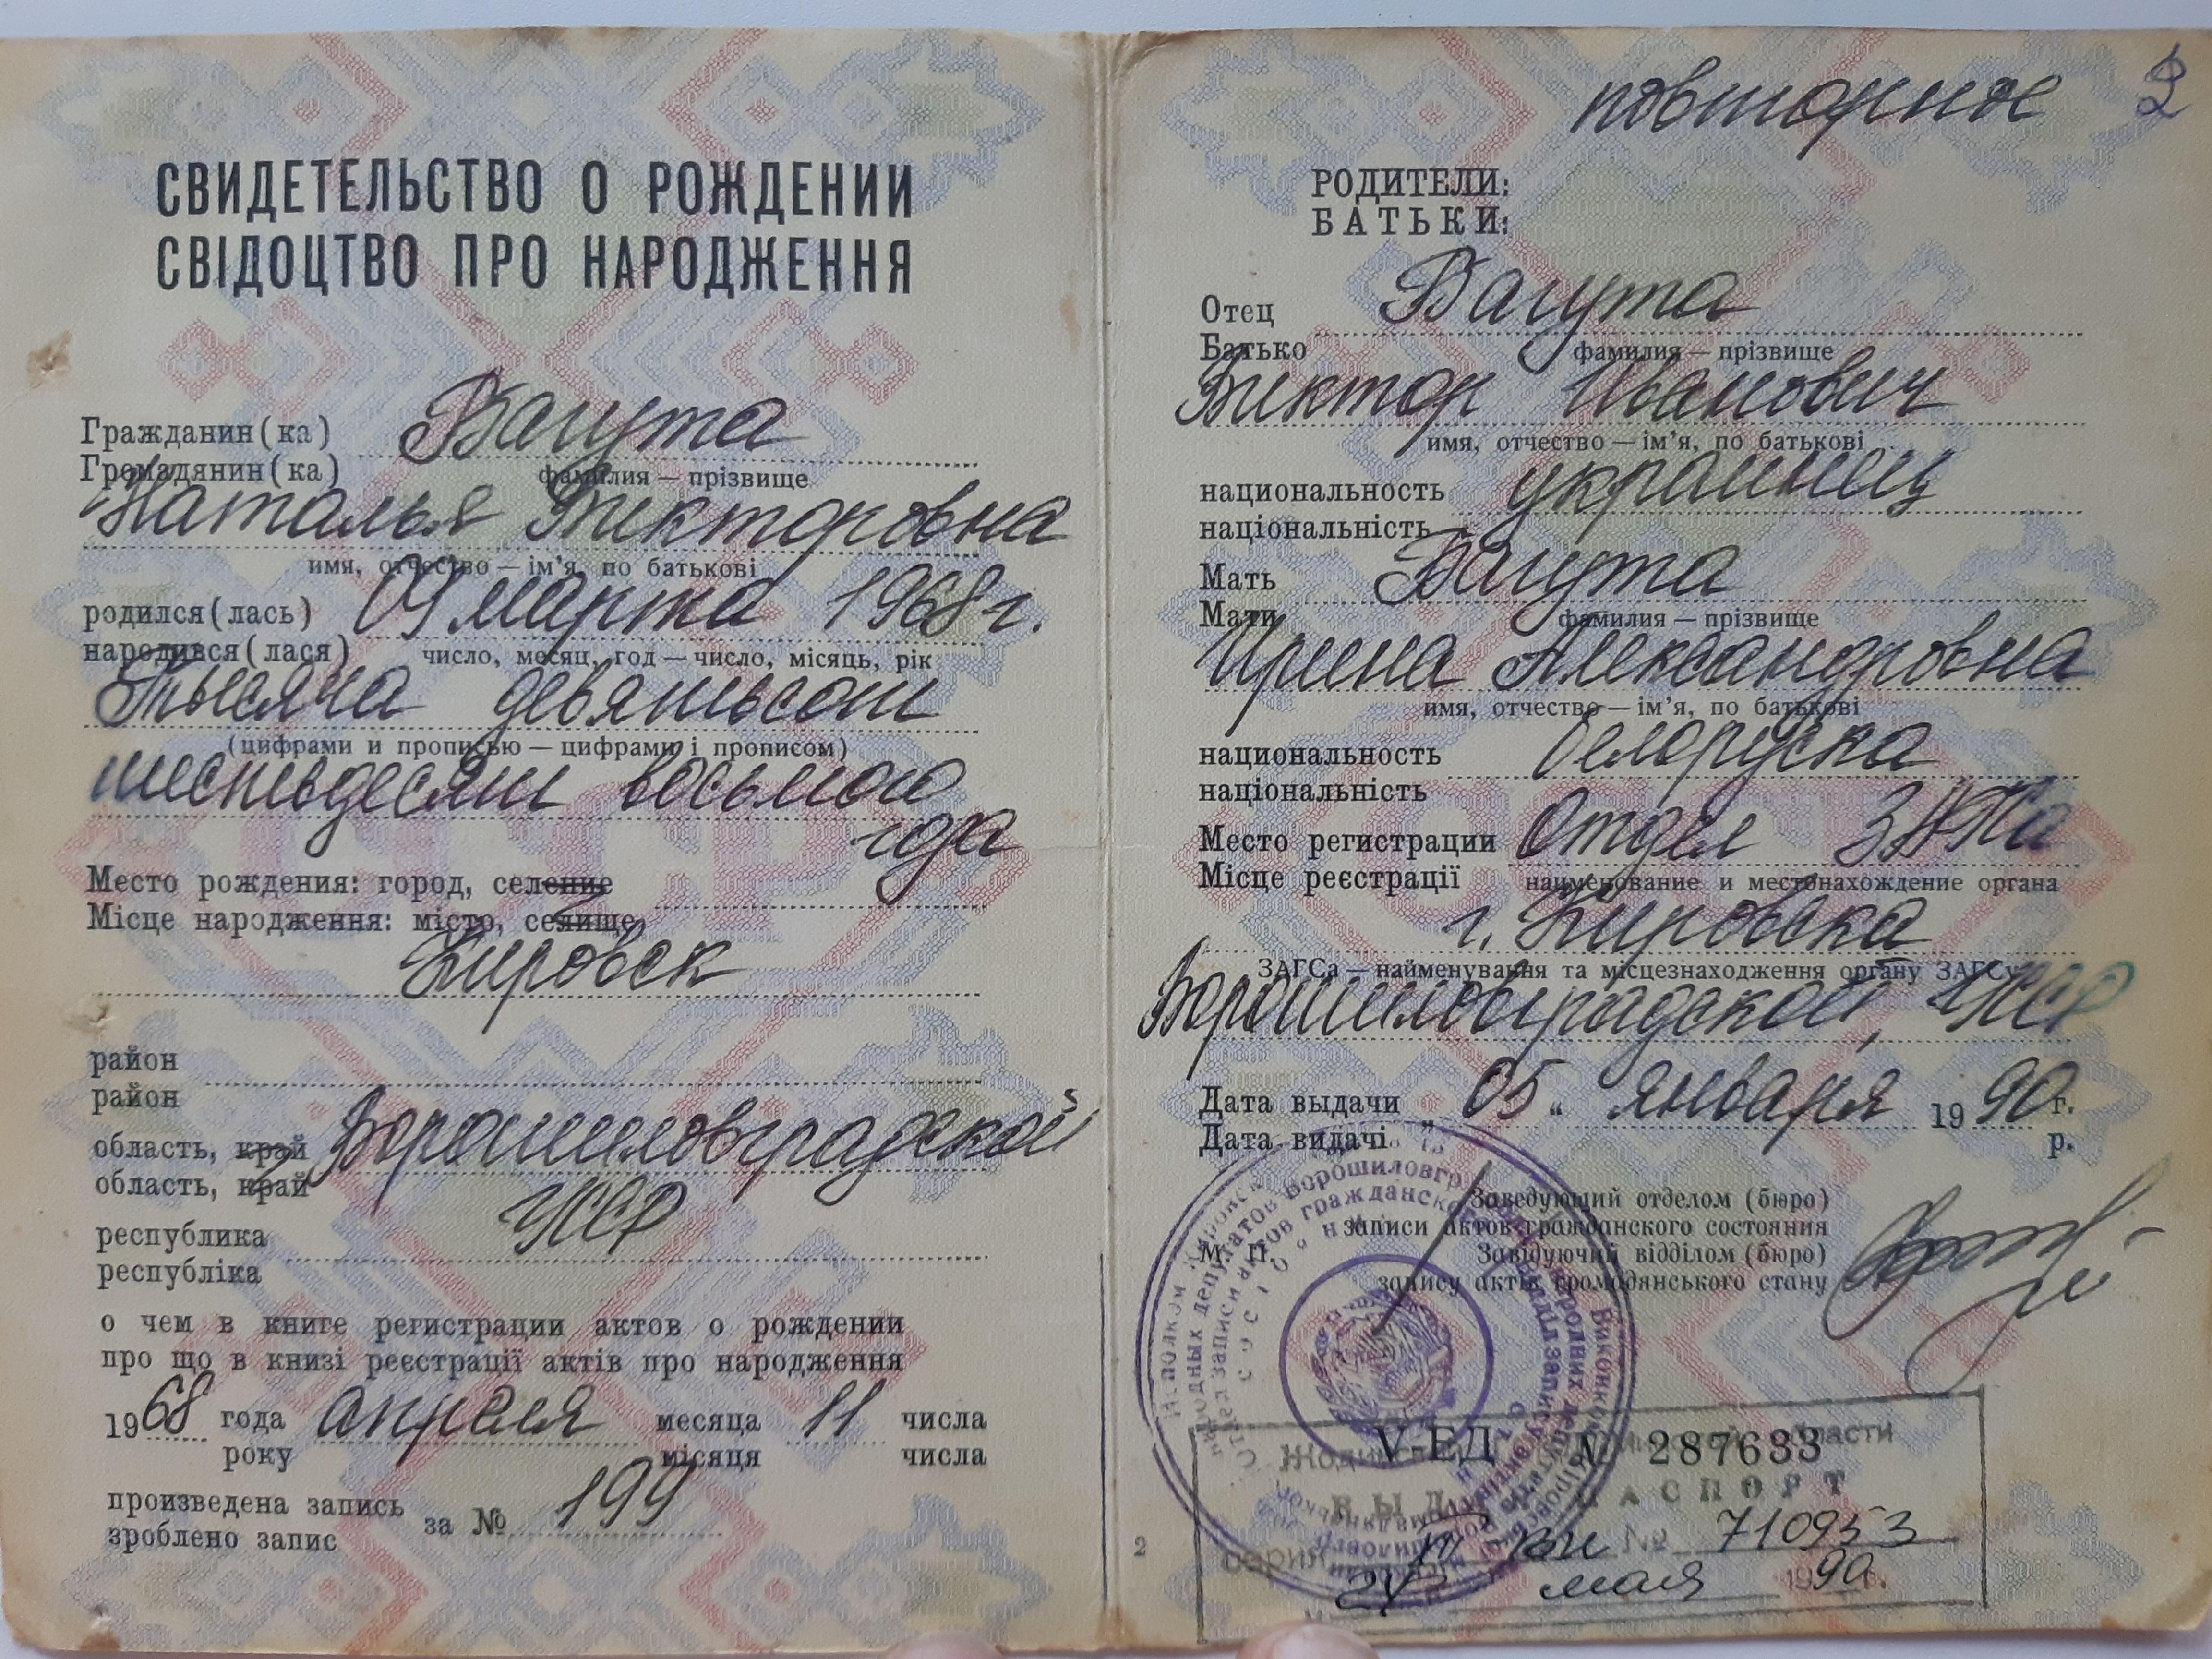 СВИДЕТЕЛЬСТВО О РОЖДЕНИИ
СВІДОЦТВО ПРО НАРОДЖЕННЯ
Гражданин(ка) Вагута
Громадянин(ка) фамилия — прізвище
Наталья Викторовна
имя, отчество — ім'я, по батькові
родился(лась) 09 марта 1968 г.
народився(лася) число, месяц, год — число, місяць, рік
Тысяча девятьсот
(цифрами и прописью — цифрами і прописом)
шестьдесят восьмого
года
Место рождения: город, селение
Місце народження: місто, селище,
Кировск
район
район
область, край Ворошиловградской
область, край
республика УССР
республіка
о чем в книге регистрации актов о рождении
про що в книзі реєстрації актів про народження
1968 года апреля месяца 11 числа
року місяця числа
произведена запись за № 199
зроблено запис
повторное
2
РОДИТЕЛИ:
БАТЬКИ:
Отец Вагута
Батько фамилия — прізвище
Виктор Иванович
имя, отчество — ім'я, по батькові
национальность украинец
національність
Мать Вагута
Мати фамилия — прізвище
Ирина Александровна
имя, отчество — ім'я, по батькові
национальность белоруска
національність
Место регистрации Отдел ЗАГСа
Місце реєстрації наименование и местонахождение органа
г. Кировска
ЗАГСа — найменування та місцезнаходження органу ЗАГСу
Ворошиловградской, УССР
Дата выдачи " 05 " января 1990 г.
Дата видачі р.
Заведующий отделом (бюро)
записи актов гражданского состояния
М. П. Завідуючий відділом (бюро)
запису актів громадянського стану
V-ЕД № 287633
ПАСПОРТ
серия III ВИ № 710953
мая 1990г.
2